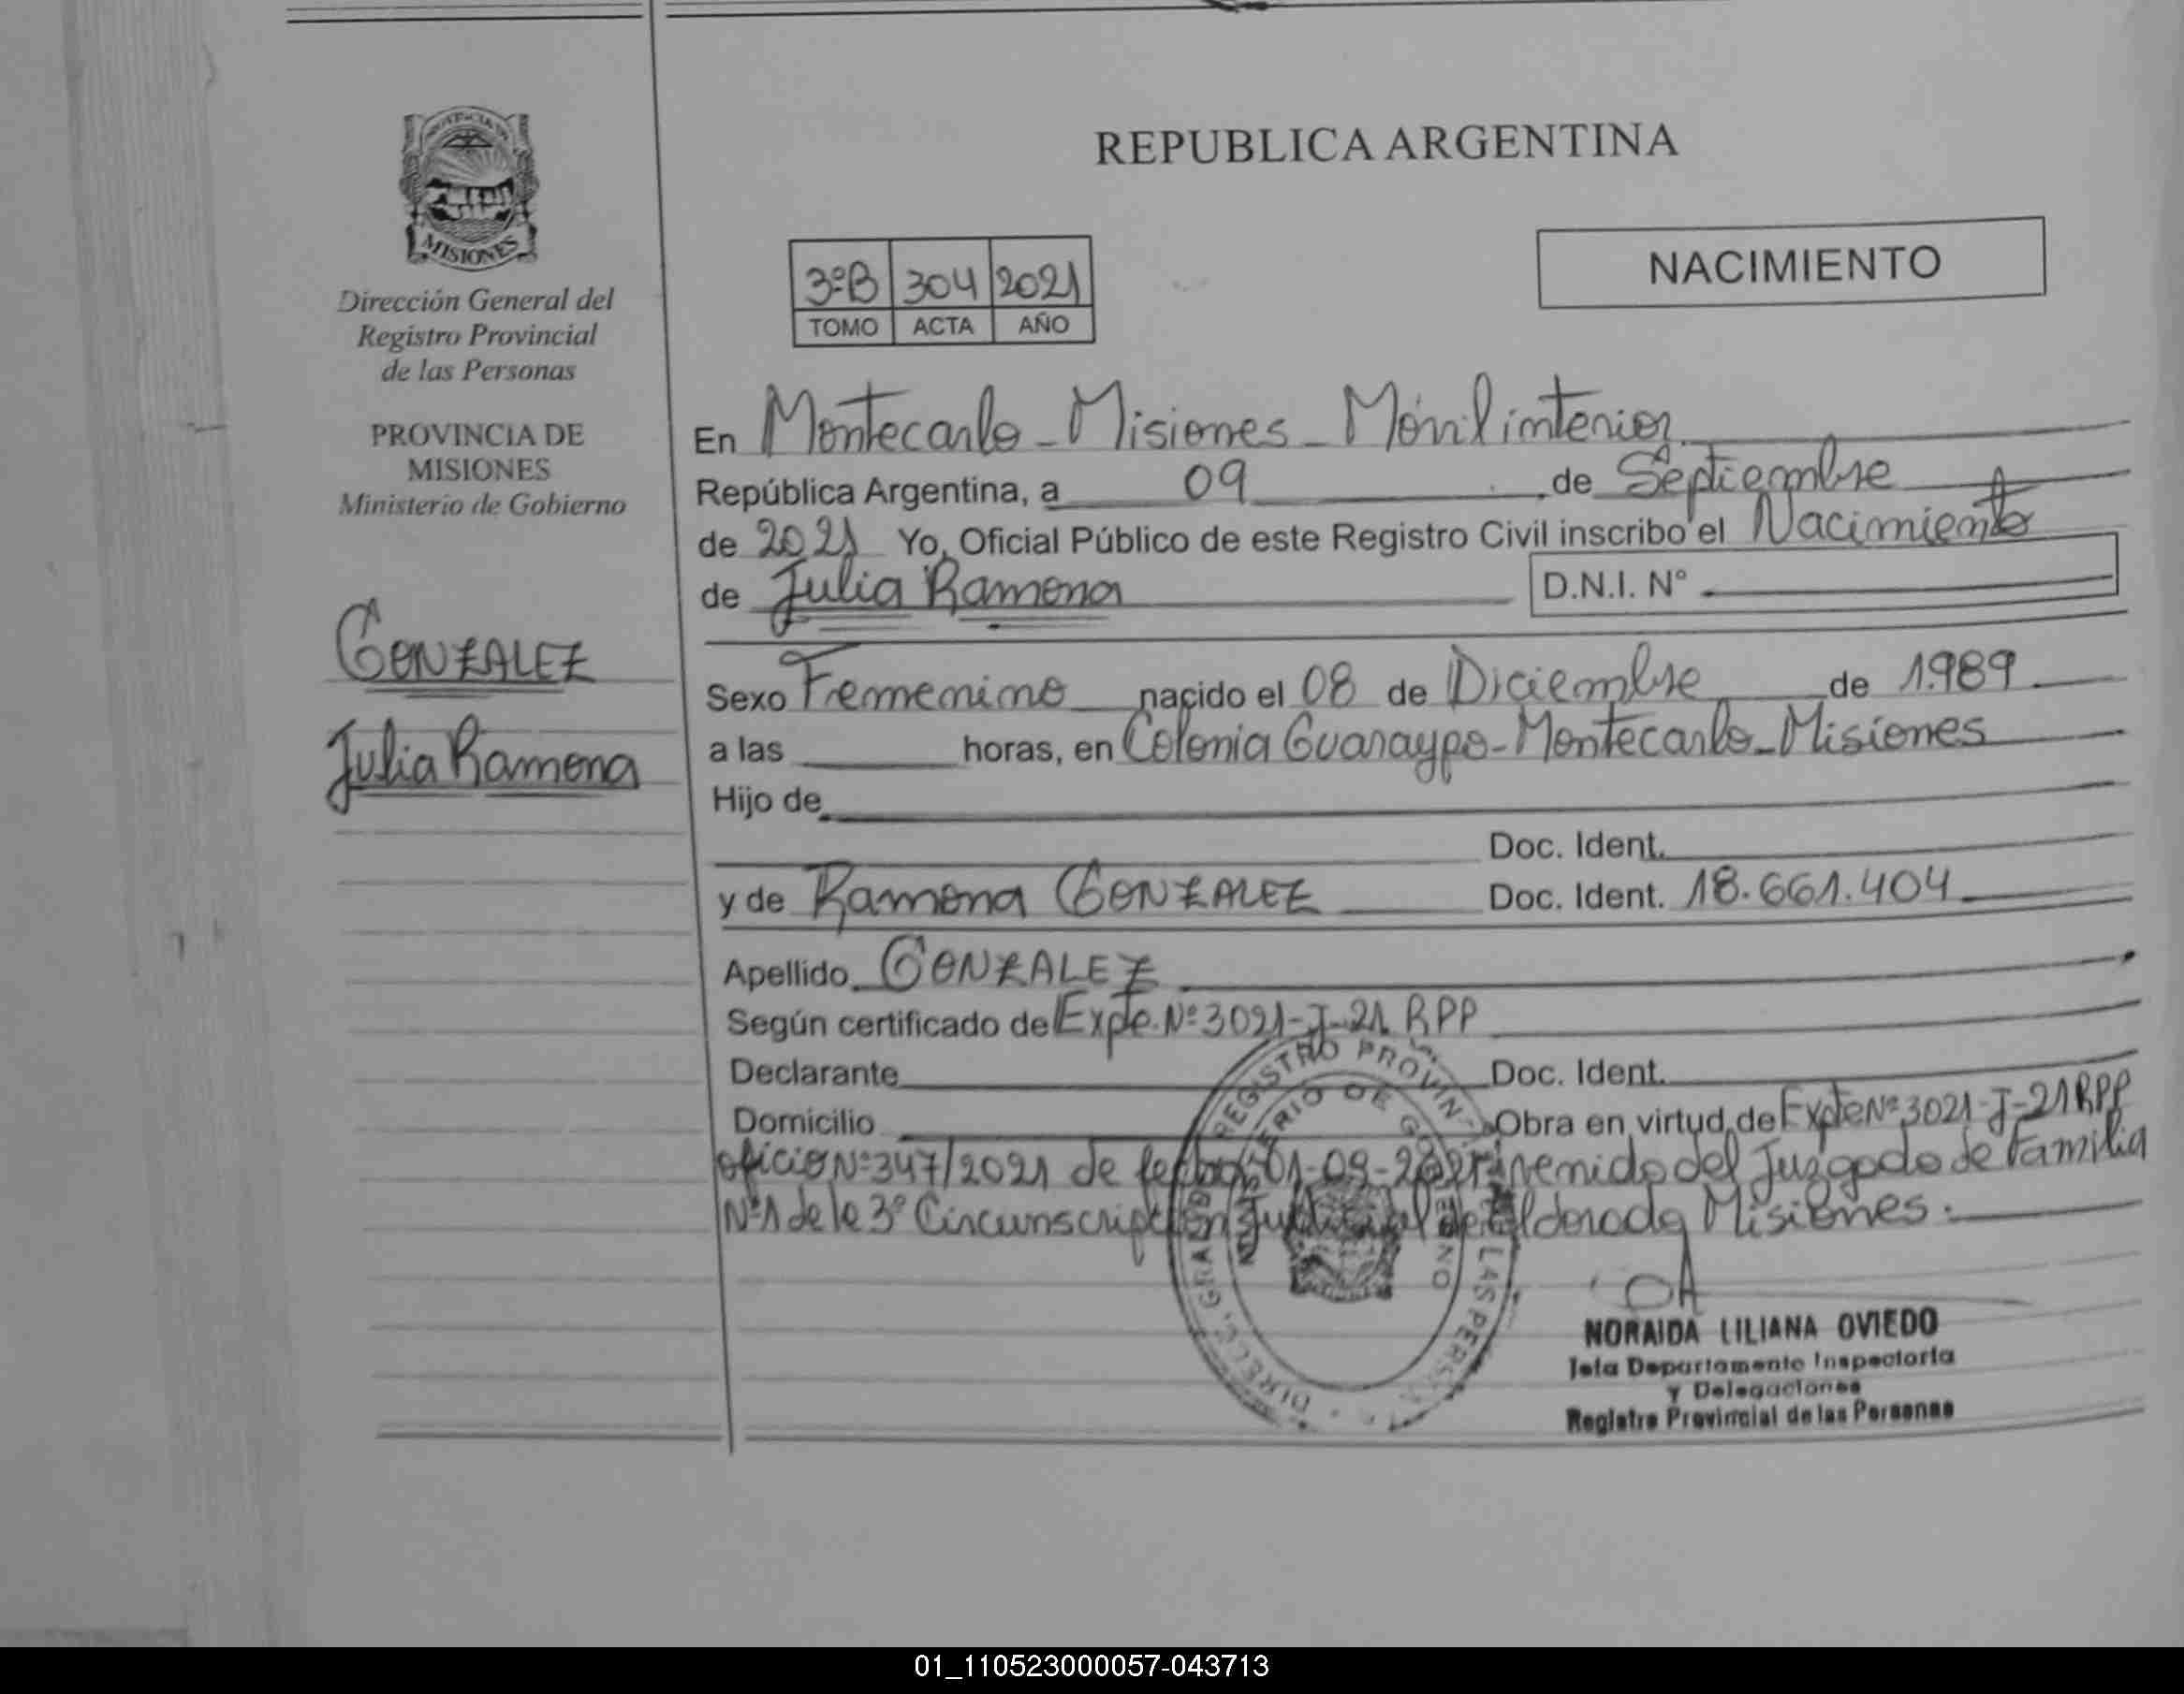 REPUBLICA ARGENTINA
PROVINCIA DE
MISIONES
Dirección General del
Registro Provincial
de las Personas
PROVINCIA DE
MISIONES
Ministerio de Gobierno
GONZALEZ
Julia Ramona
3ºB 304 2021
TOMO ACTA AÑO
NACIMIENTO
En Montecarlo - Misiones - Móvil interior
República Argentina, a 09 de Septiembre
de 2021 Yo, Oficial Público de este Registro Civil inscribo el Nacimiento
de Julia Ramona D.N.I. N°
Sexo Femenino nacido el 08 de Diciembre de 1.989
a las horas, en Colonia Guaraypo - Montecarlo - Misiones
Hijo de
Doc. Ident.
y de Ramona GONZALEZ Doc. Ident. 18.661.404
Apellido GONZALEZ
Según certificado de Expte. Nº 3021-J-21 RPP
Declarante Doc. Ident.
Domicilio Obra en virtud de Expte Nº 3021-J-21 RPP
oficio Nº 347/2021 de fecha 01-09-2021 venido del Juzgado de Familia
Nº1 de la 3º Circunscripción Judicial de Eldorado Misiones.
REGISTRO PROVIN
LAS PERS
DIRECC. GRAL. D
ERIO DE GO
NORAIDA LILIANA OVIEDO
Jefa Departamento Inspectoría
y Delegaciones
Registro Provincial de las Personas
01_110523000057-043713